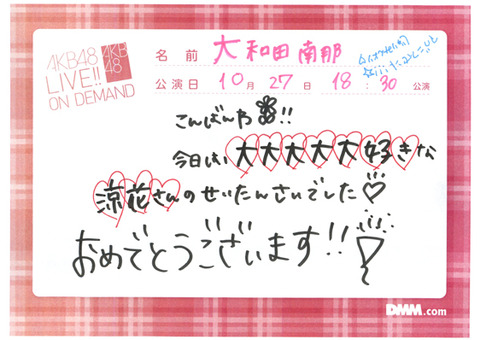 AKB48
LIVE!!
ON DEMAND
AKB
48
名前 大和田南那
公演日 10月27日 18:30 公演
こんばんわ!!
今日は、大大大大大好きな
涼花さんのせいたんさいでした
おめでとうございます!!
DMM.com